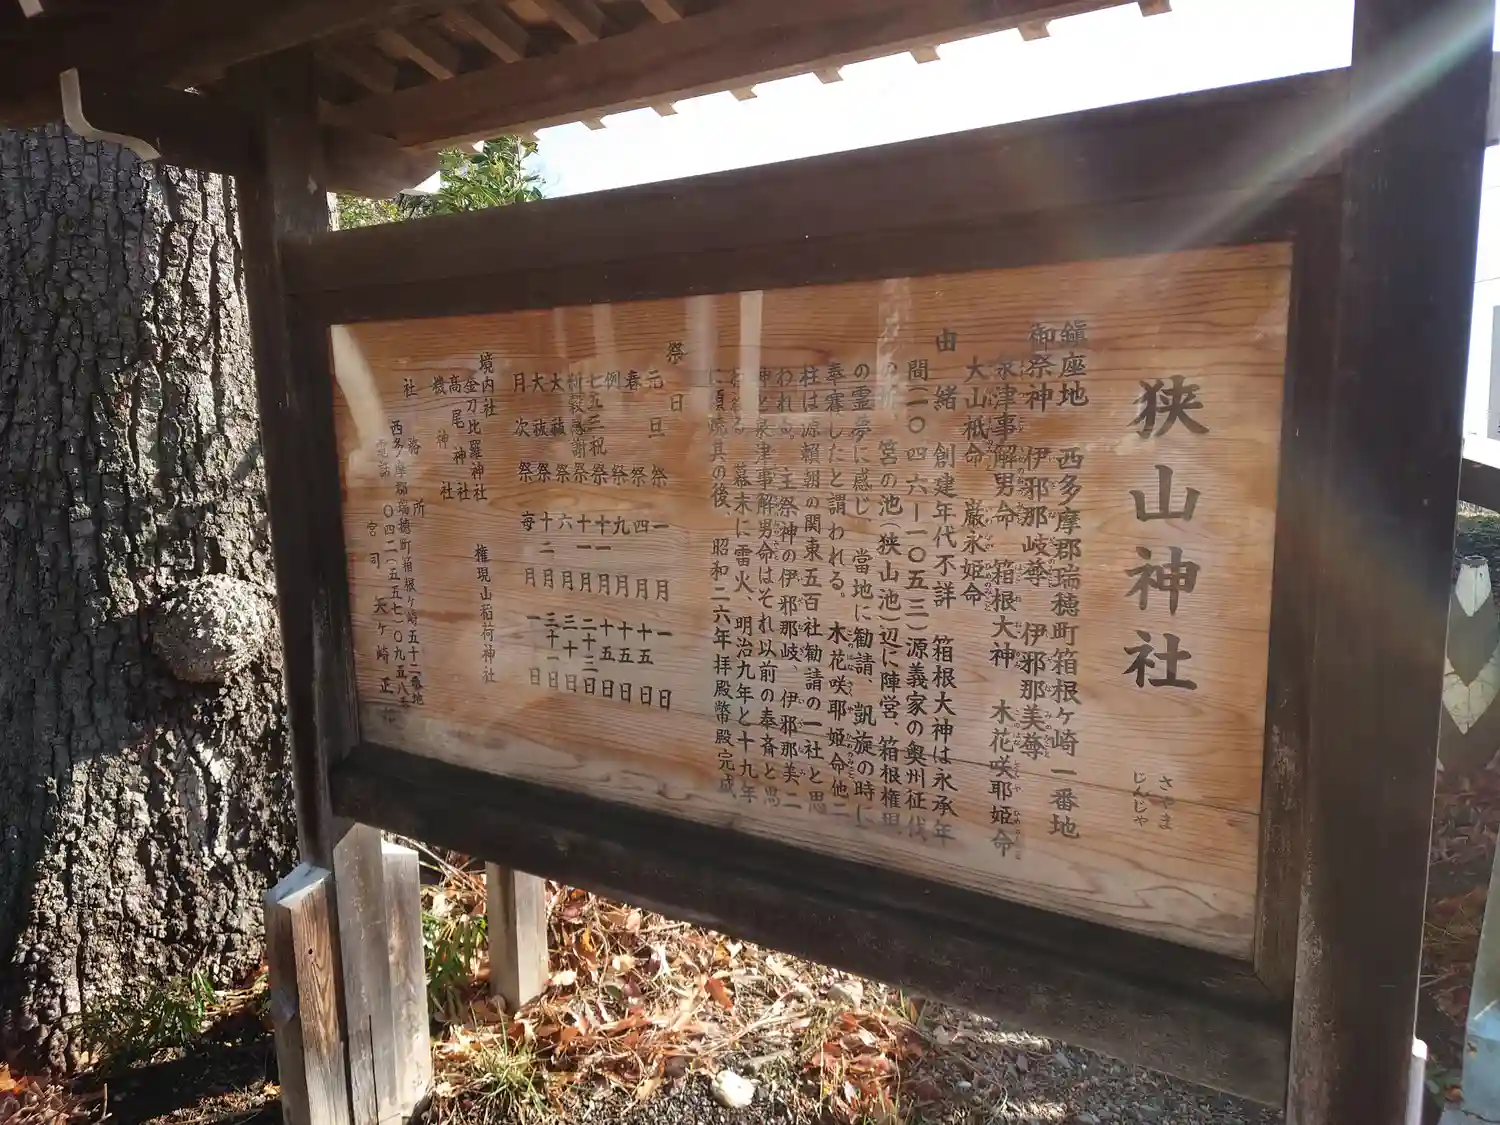 狭山神社
さやま
じんじゃ
鎮座地 西多摩郡瑞穂町箱根ヶ崎一番地
御祭神 伊邪那岐尊 伊邪那美尊
泉津事解男命 箱根大神 木花咲耶姫命
大山祇命 厳永姫命
由緒 創建年代不詳 箱根大神は永承年
間(一〇四六ー一〇五三)源義家の奥州征伐
の折 筥の池(狭山池)辺に陣営、箱根権現
の霊夢に感じ、當地に勧請、凱旋の時に
奉賽したと謂われる。木花咲耶姫命他二
柱は源頼朝の関東五百社勧請の一社と思
われる。主祭神の伊邪那岐、伊邪那美二
神と泉津事解男命はそれ以前の奉斎と思
われる 幕末に雷火、明治九年と十九年
に類焼其の後 昭和二六年拝殿幣殿完成
祭日
元旦祭 一月一日
春祭 四月十五日
例祭 九月十五日
七五三祝祭 十一月十五日
新穀感謝祭 十一月二十三日
大祓祭 六月三十日
大祓祭 十二月三十一日
月次祭 毎月一日
境内社 金刀比羅神社 権現山稲荷神社
高尾神社
機神社
社務所
西多摩郡瑞穂町箱根ヶ崎五十二番地
電話 〇四二(五五七)〇九五八
宮司